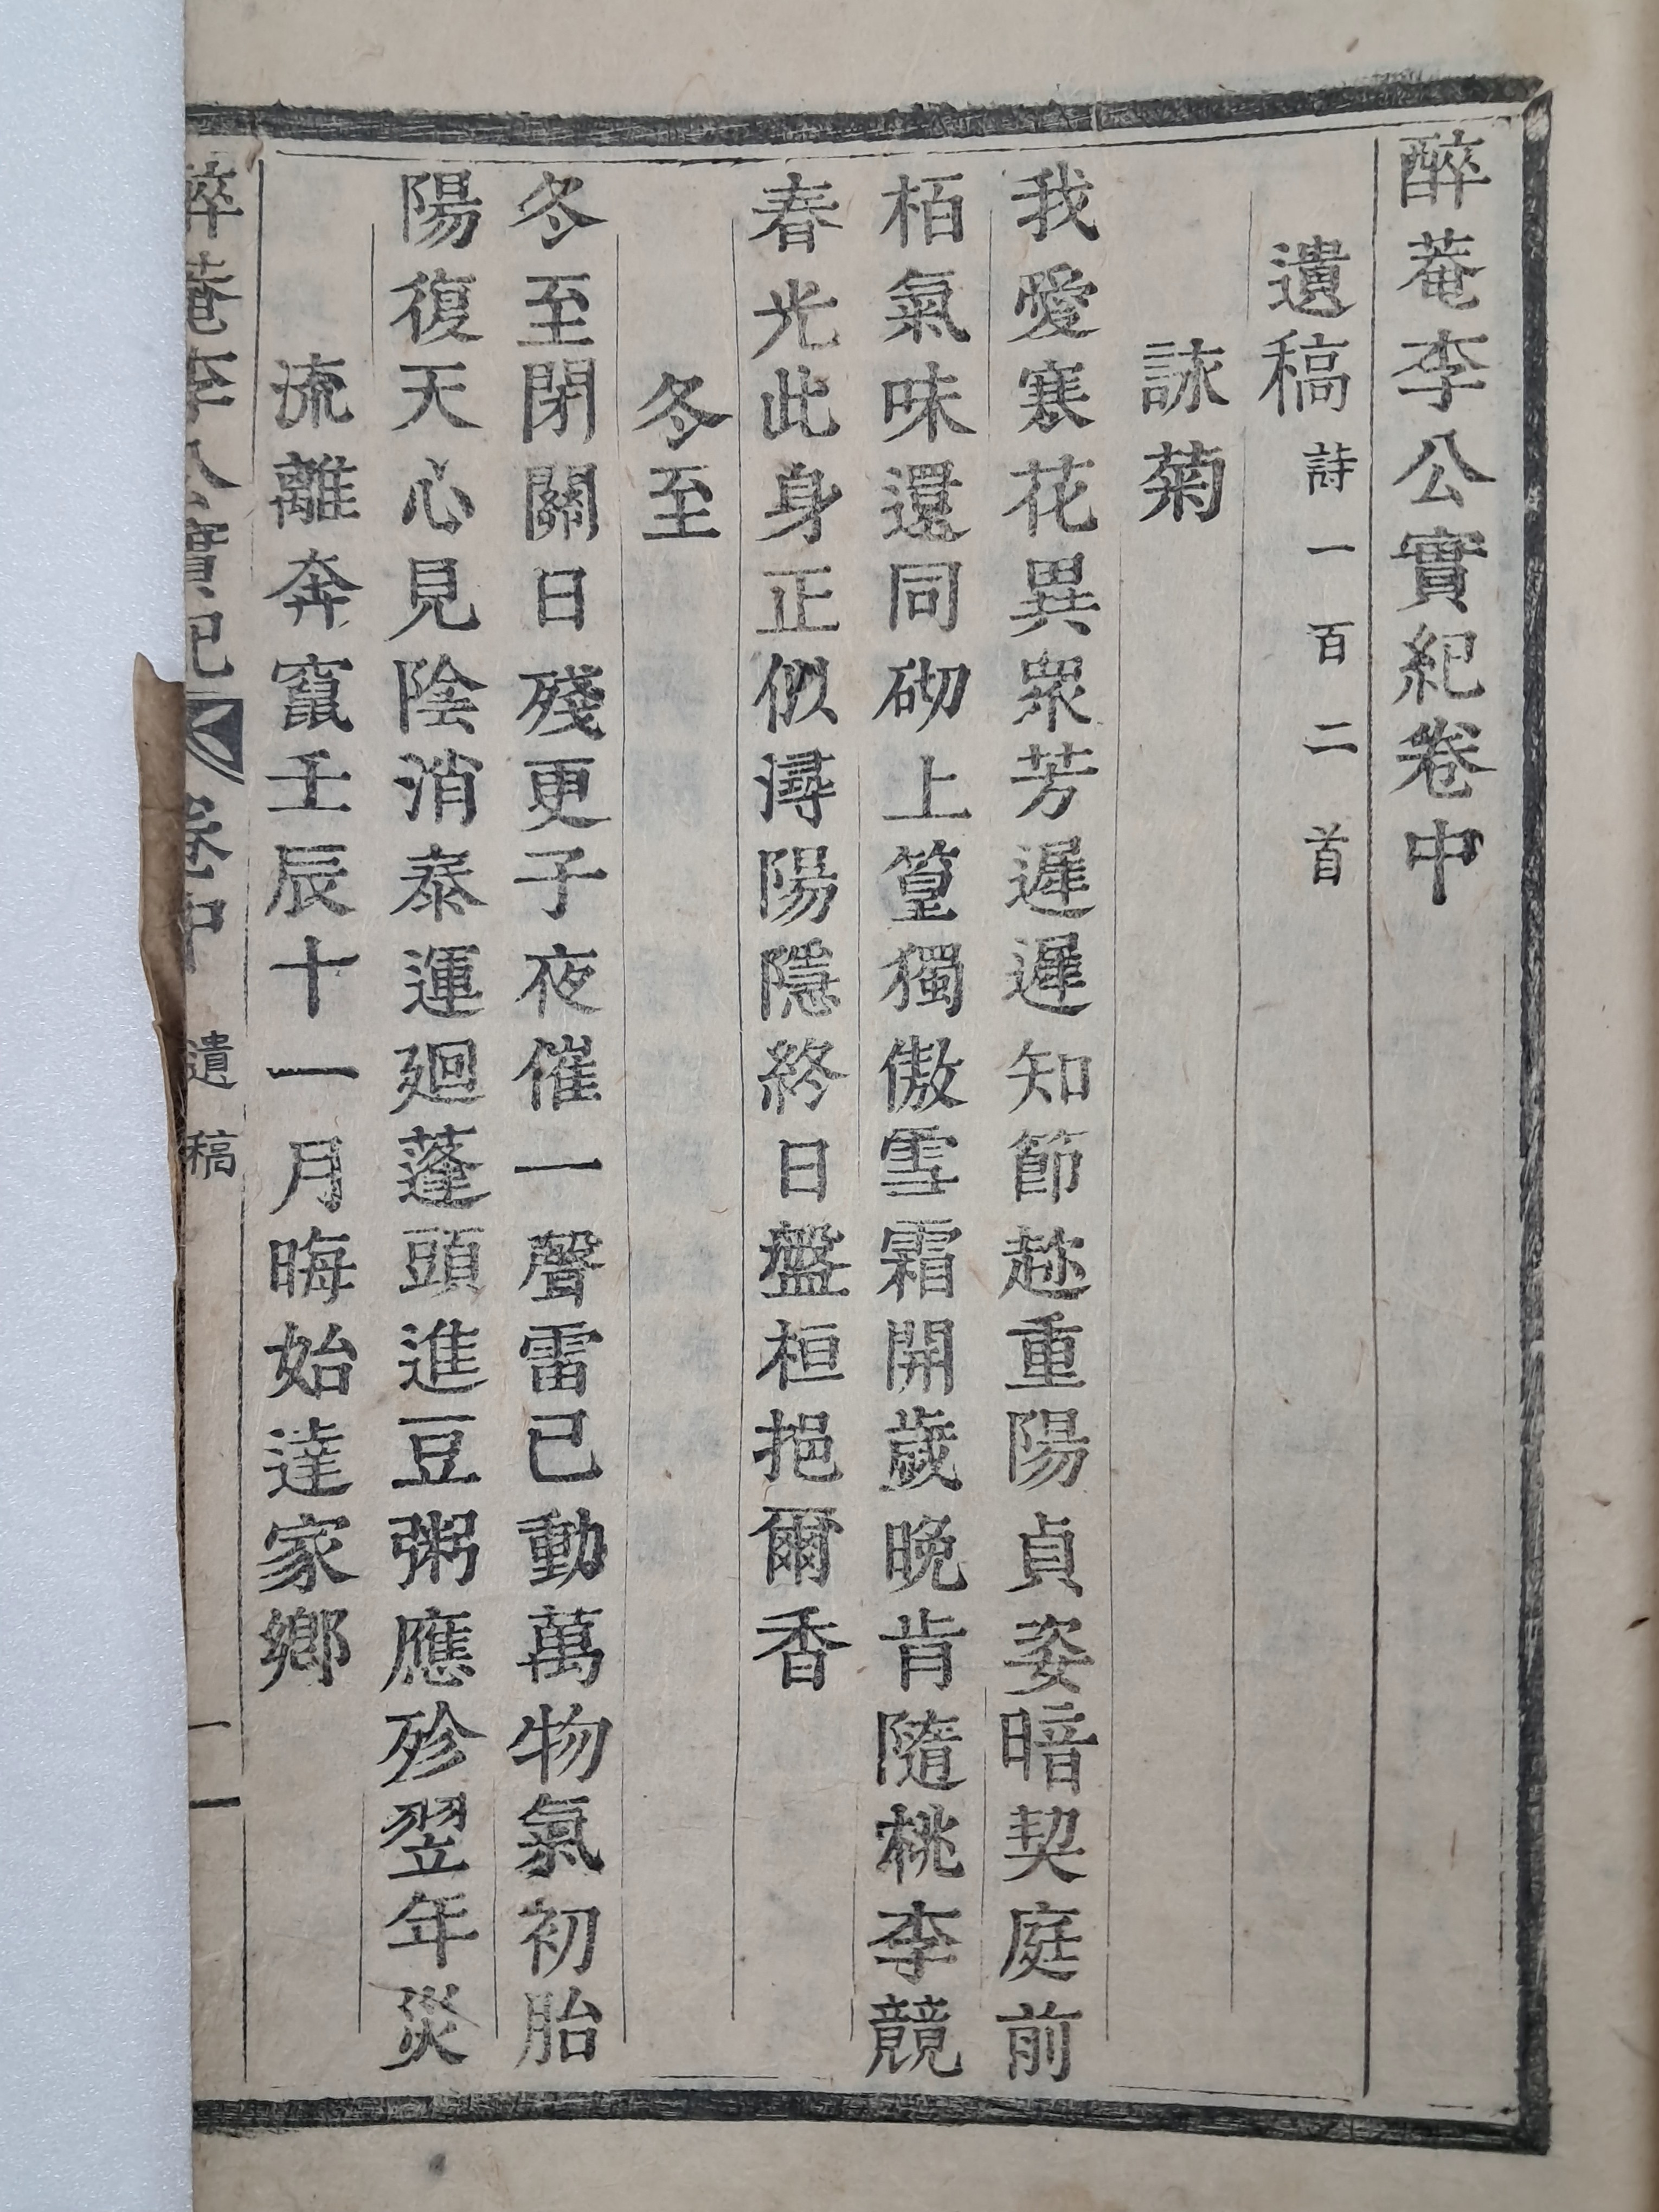 醉菴李公實紀卷中
遺稿 詩一百二首
詠菊
我愛寒花異衆芳遲遲知節趂重陽貞姿暗契庭前
栢氣味還同砌上篁獨傲雪霜開歲晚肯隨桃李競
春光此身正似潯陽隱終日盤桓挹爾香
冬至
冬至閉關日殘更子夜催一聲雷已動萬物氣初胎
陽復天心見陰消泰運廻蓬頭進豆粥應殄翌年災
流離奔竄壬辰十一月晦始達家鄉
醉菴李公實紀 卷中 遺稿 一